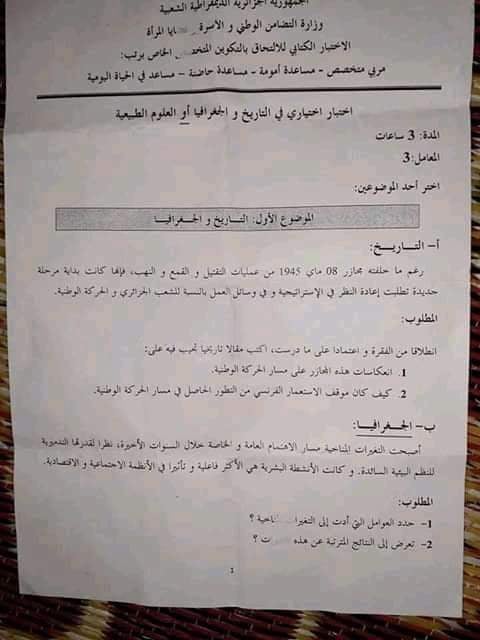 الجمهورية الجزائرية الديمقراطية الشعبية
وزارة التضامن الوطني و الأسرة و المرأة
الاختبار الكتابي للالتحاق بالتكوين المتخصص الخاص برتب:
مربي متخصص - مساعدة أمومة - مساعدة حاضنة - مساعد في الحياة اليومية
اختبار اختياري في التاريخ و الجغرافيا أو العلوم الطبيعية
المدة: 3 ساعات
المعامل: 3
اختر أحد الموضوعين:
الموضوع الأول: التاريخ و الجغرافيا
أ- التاريخ:
رغم ما خلفته مجازر 08 ماي 1945 من عمليات التقتيل و القمع و النهب، فإنها كانت بداية مرحلة
جديدة تطلبت إعادة النظر في الإستراتيجية و في وسائل العمل بالنسبة للشعب الجزائري و الحركة الوطنية.
المطلوب:
انطلاقا من الفقرة و اعتمادا على ما درست، اكتب مقالا تاريخيا تجيب فيه على:
1. انعكاسات هذه المجازر على مسار الحركة الوطنية.
2. كيف كان موقف الاستعمار الفرنسي من التطور الحاصل في مسار الحركة الوطنية.
ب- الجغرافيا:
أصبحت التغيرات المناخية مسار الاهتمام العامة و الخاصة خلال السنوات الأخيرة، نظرا لقدرتها التدميرية
للنظم البيئية السائدة. و كانت الأنشطة البشرية هي الأكثر فاعلية و تأثيرا في الأنظمة الاجتماعية و الاقتصادية.
المطلوب:
1- حدد العوامل التي أدت إلى التغيرات المناخية ؟
2- تعرض إلى النتائج المترتبة عن هذه ؟
1